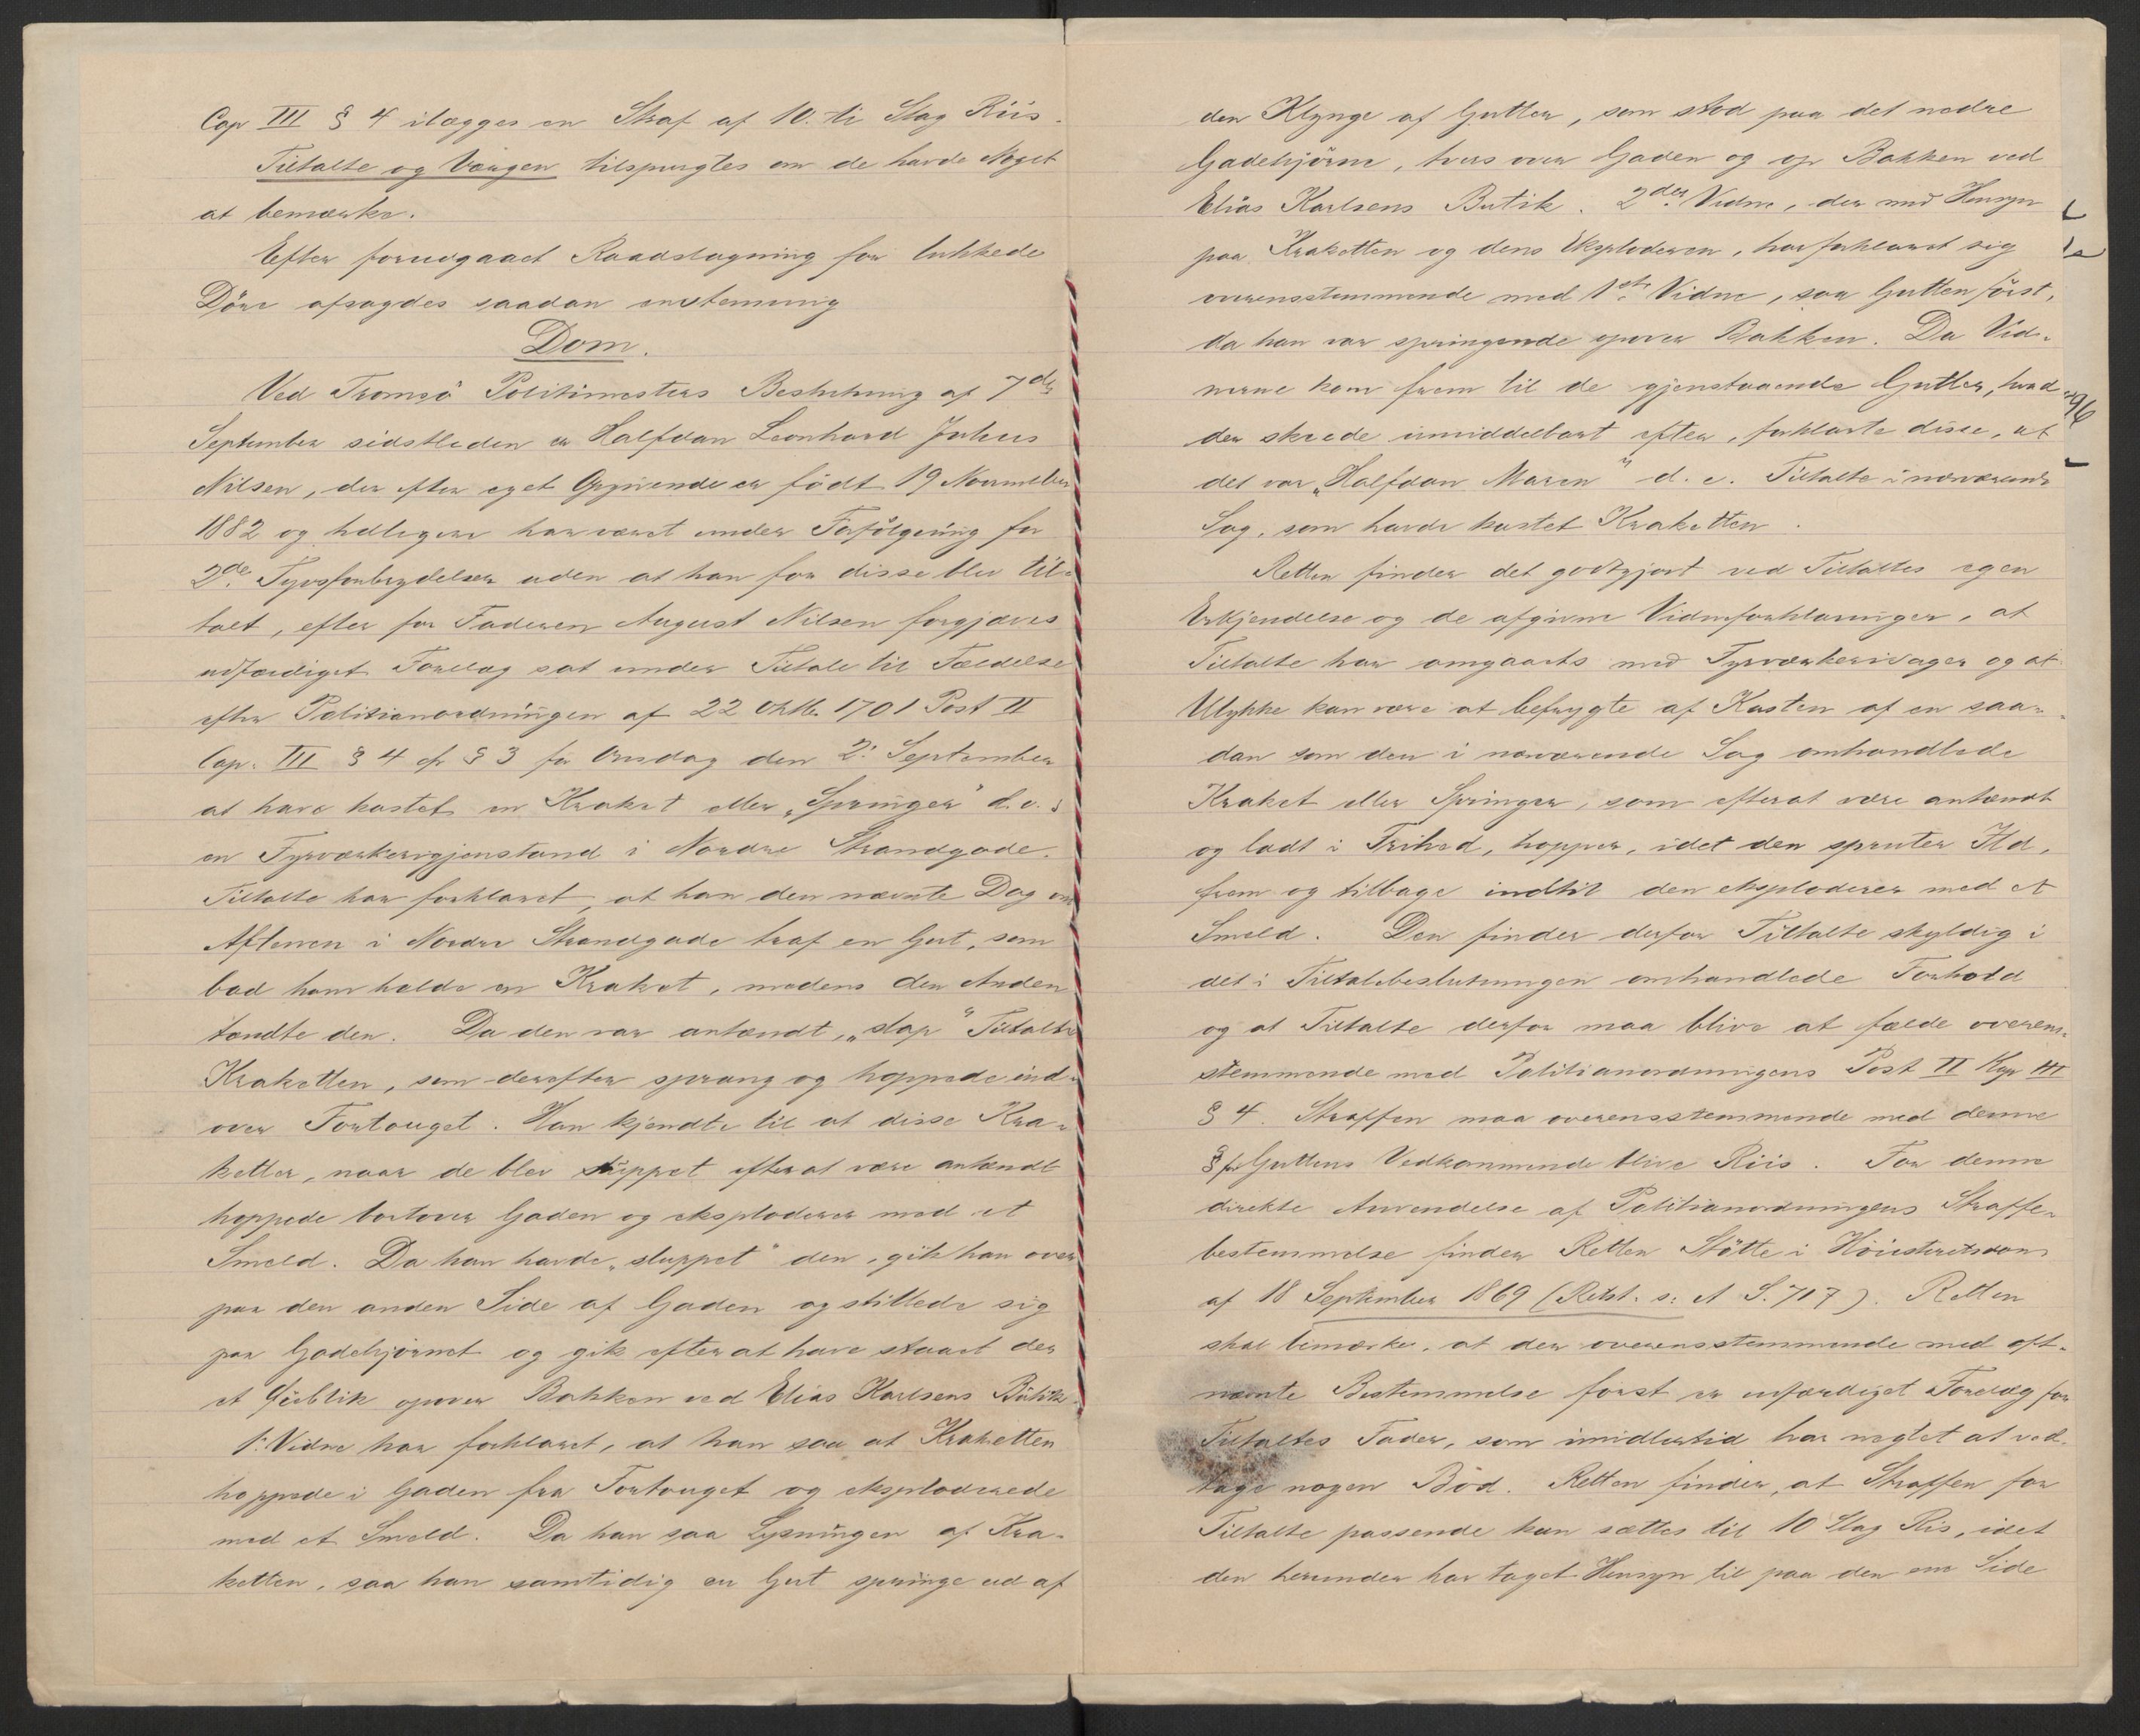 Cap III § 4 ilægges en Straf af 10. ti Slag Riis.
Tiltalte og Værgen tilspurgtes om de havde Noget
at bemærke.
Efter forudgaaet Raadslagning for lukkede
Döre afsagdes saadan enstemmig
Dom.
Ved Tromsö Politimesters Beslutning af 7de
September sidstleden er Halfdan Leonhard Julius
Nilsen, der efter eget Opgivende er födt 19 November
1882 og tidligere har været under Forfölgning for
2de Tyvsforbrydelser uden at han for disse blev til-
talt, efter for Faderen August Nilsen forgjæves
udfærdiget Forelæg sat under Tiltale til Fældelse
efter Politianordningen af 22 Oktbr. 1701 Post II
Cap. III § 4 cfr § 3 for Onsdag den 2. September
at have kastet en Kraket eller „Springer" d. v. s
en Fyrværkerigjenstand i Nordre Strandgade.
Tiltalte har forklaret, at han den nævnte Dag om
Aftenen i Nordre Strandgade traf en Gut, som
bad ham holde en Kraket, medens den Anden
tændte den. Da den var antændt, „slap" Tiltalte
Kraketten, som derefter sprang og hoppede ind-
over Fortouget. Han kjendte til at disse Kra-
ketter, naar de blev sluppet efterat være antændt
hoppede bortover Gaden og eksploderer med et
Smeld. Da han havde „sluppet" den, gik han over
paa den anden Side af Gaden og stillede sig
paa Gadehjörnet og gik efter at have staaet der
et Öieblik opover Bakken ved Elias Karlsens Butik.
1. Vidne har forklaret, at han saa at Kraketten
hoppede i Gaden fra Fortouget og eksploderede
med et Smeld. Da han saa Lysningen af Kra-
ketten, saa han samtidig en Gut springe ud af
den Klynge af Gutter, som stod paa det nedre
Gadehjörne, tvers over Gaden og op Bakken ved
Elias Karlsens Butik. 2det Vidne, der med Hensyn
paa Kraketten og dens Eksploderen, har forklaret sig
overensstemmende med 1ste Vidne, saa Gutten först,
da han var springende opover Bakken. Da Vid-
nerne kom frem til de gjenstaaende Gutter, hvad
der skede umiddelbart efter, forklarte disse, at
det var „Halfdan Maren" d. e. Tiltalte i nærværende
Sag, som havde kastet Kraketten.
Retten finder det godtgjort ved Tiltaltes egen
Erkjendelse og de afgivne Vidneforklaringer, at
Tiltalte har omgaaets med Fyrværkerisager og at
Ulykke kan være at befrygte af Kasten af en saa-
dan som den i nærværende Sag omhandlede
Kraket eller Springer, som efterat være antændt
og ladt i Frihed, hopper, idet den spruter Ild,
frem og tilbage indtil den eksploderer med et
Smeld. Den finder derfor Tiltalte skyldig i
det i Tiltalebeslutningen omhandlede Forhold
og at Tiltalte derfor maa blive at fælde overens-
stemmende med Politianordningens Post II Kap III
§ 4. Straffen maa overensstemmende med denne
§ for Guttens Vedkommende blive Riis. For denne
direkte Anvendelse af Politianordningens Straffe-
bestemmelse finder Retten Stötte i Höiesteretsdom
af 18 September 1869 (Retst. s: A S. 717). Retten
skal bemærke, at der overensstemmende med oft-
nævnte Bestemmelse först er udfærdiget Forelæg for
Tiltaltes Fader, som imidlertid har negtet at ved-
tage nogen Bod. Retten finder, at Straffen for
Tiltalte passende kan sættes til 10 Slag Ris, idet
den herunder har taget Hensyn til paa den ene Side